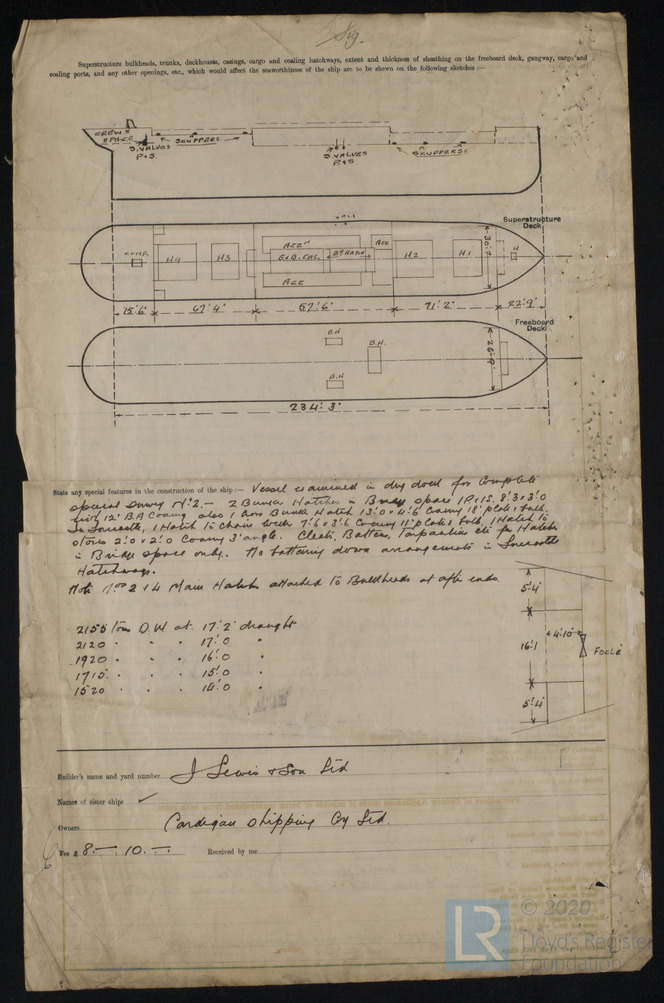 Sig.
Superstructure bulkheads, trunks, deckhouses, casings, cargo and coaling hatchways, extent and thickness of sheathing on the freeboard deck, gangway, cargo and
coaling ports, and any other openings, etc., which would affect the seaworthiness of the ship are to be shewn on the following sketches:—
CREWS
SPACE
S.VALVES
P+S.
SCUPPERS
S.VALVES
P+S
SCUPPERS
Superstructure
Deck
COMP.
H4
H3
ACC
E&B. CAS.
ACC
ACC
H2
H1
H
30'
15'6"
67'4"
57'6"
71'2"
22'9"
Freeboard
Deck
B.H.
B.H.
B.H
26'9"
234'3"
State any special features in the construction of the ship:— Vessel examined in dry dock for Complete
Special Survey No 2.— 2 Bunker Hatches in Bridge space 1P+1S. 8'3 x 3'0
with 12" B.A Coaming also 1 Cross Bunker Hatch 13'0 x 4'6 Coaming 18" plate + bulb.
In Forecastle, 1 Hatch to chain locker 7'6 x 3'6 Coaming 18" plate + bulb, 1 Hatch to
stores 2'0 x 2'0 Coaming 3" angle. Cleats, Battens, Tarpaulins etc for Hatches
in Bridge space only. No battening down arrangements in Forecastle
Hatchways.
Note Nos 2 + 4 Main Hatches attached to Bulkheads at aft ends.
2155 tons D.W at 17'2" draught
2120 " " " 17'0 "
1920 " " " 16'0 "
1715 " " " 15'0 "
1520 " " " 14'0 "
5'4"
16'1
4'10"
Focle
5'4"
Builder's name and yard number J Lewis & Son Ltd
Names of sister ships ✓
Owners Cardigan Shipping Coy Ltd.
Fee £ 8.—. 10.—. Received by me
LR
© 2020
Lloyd's Register
Foundation